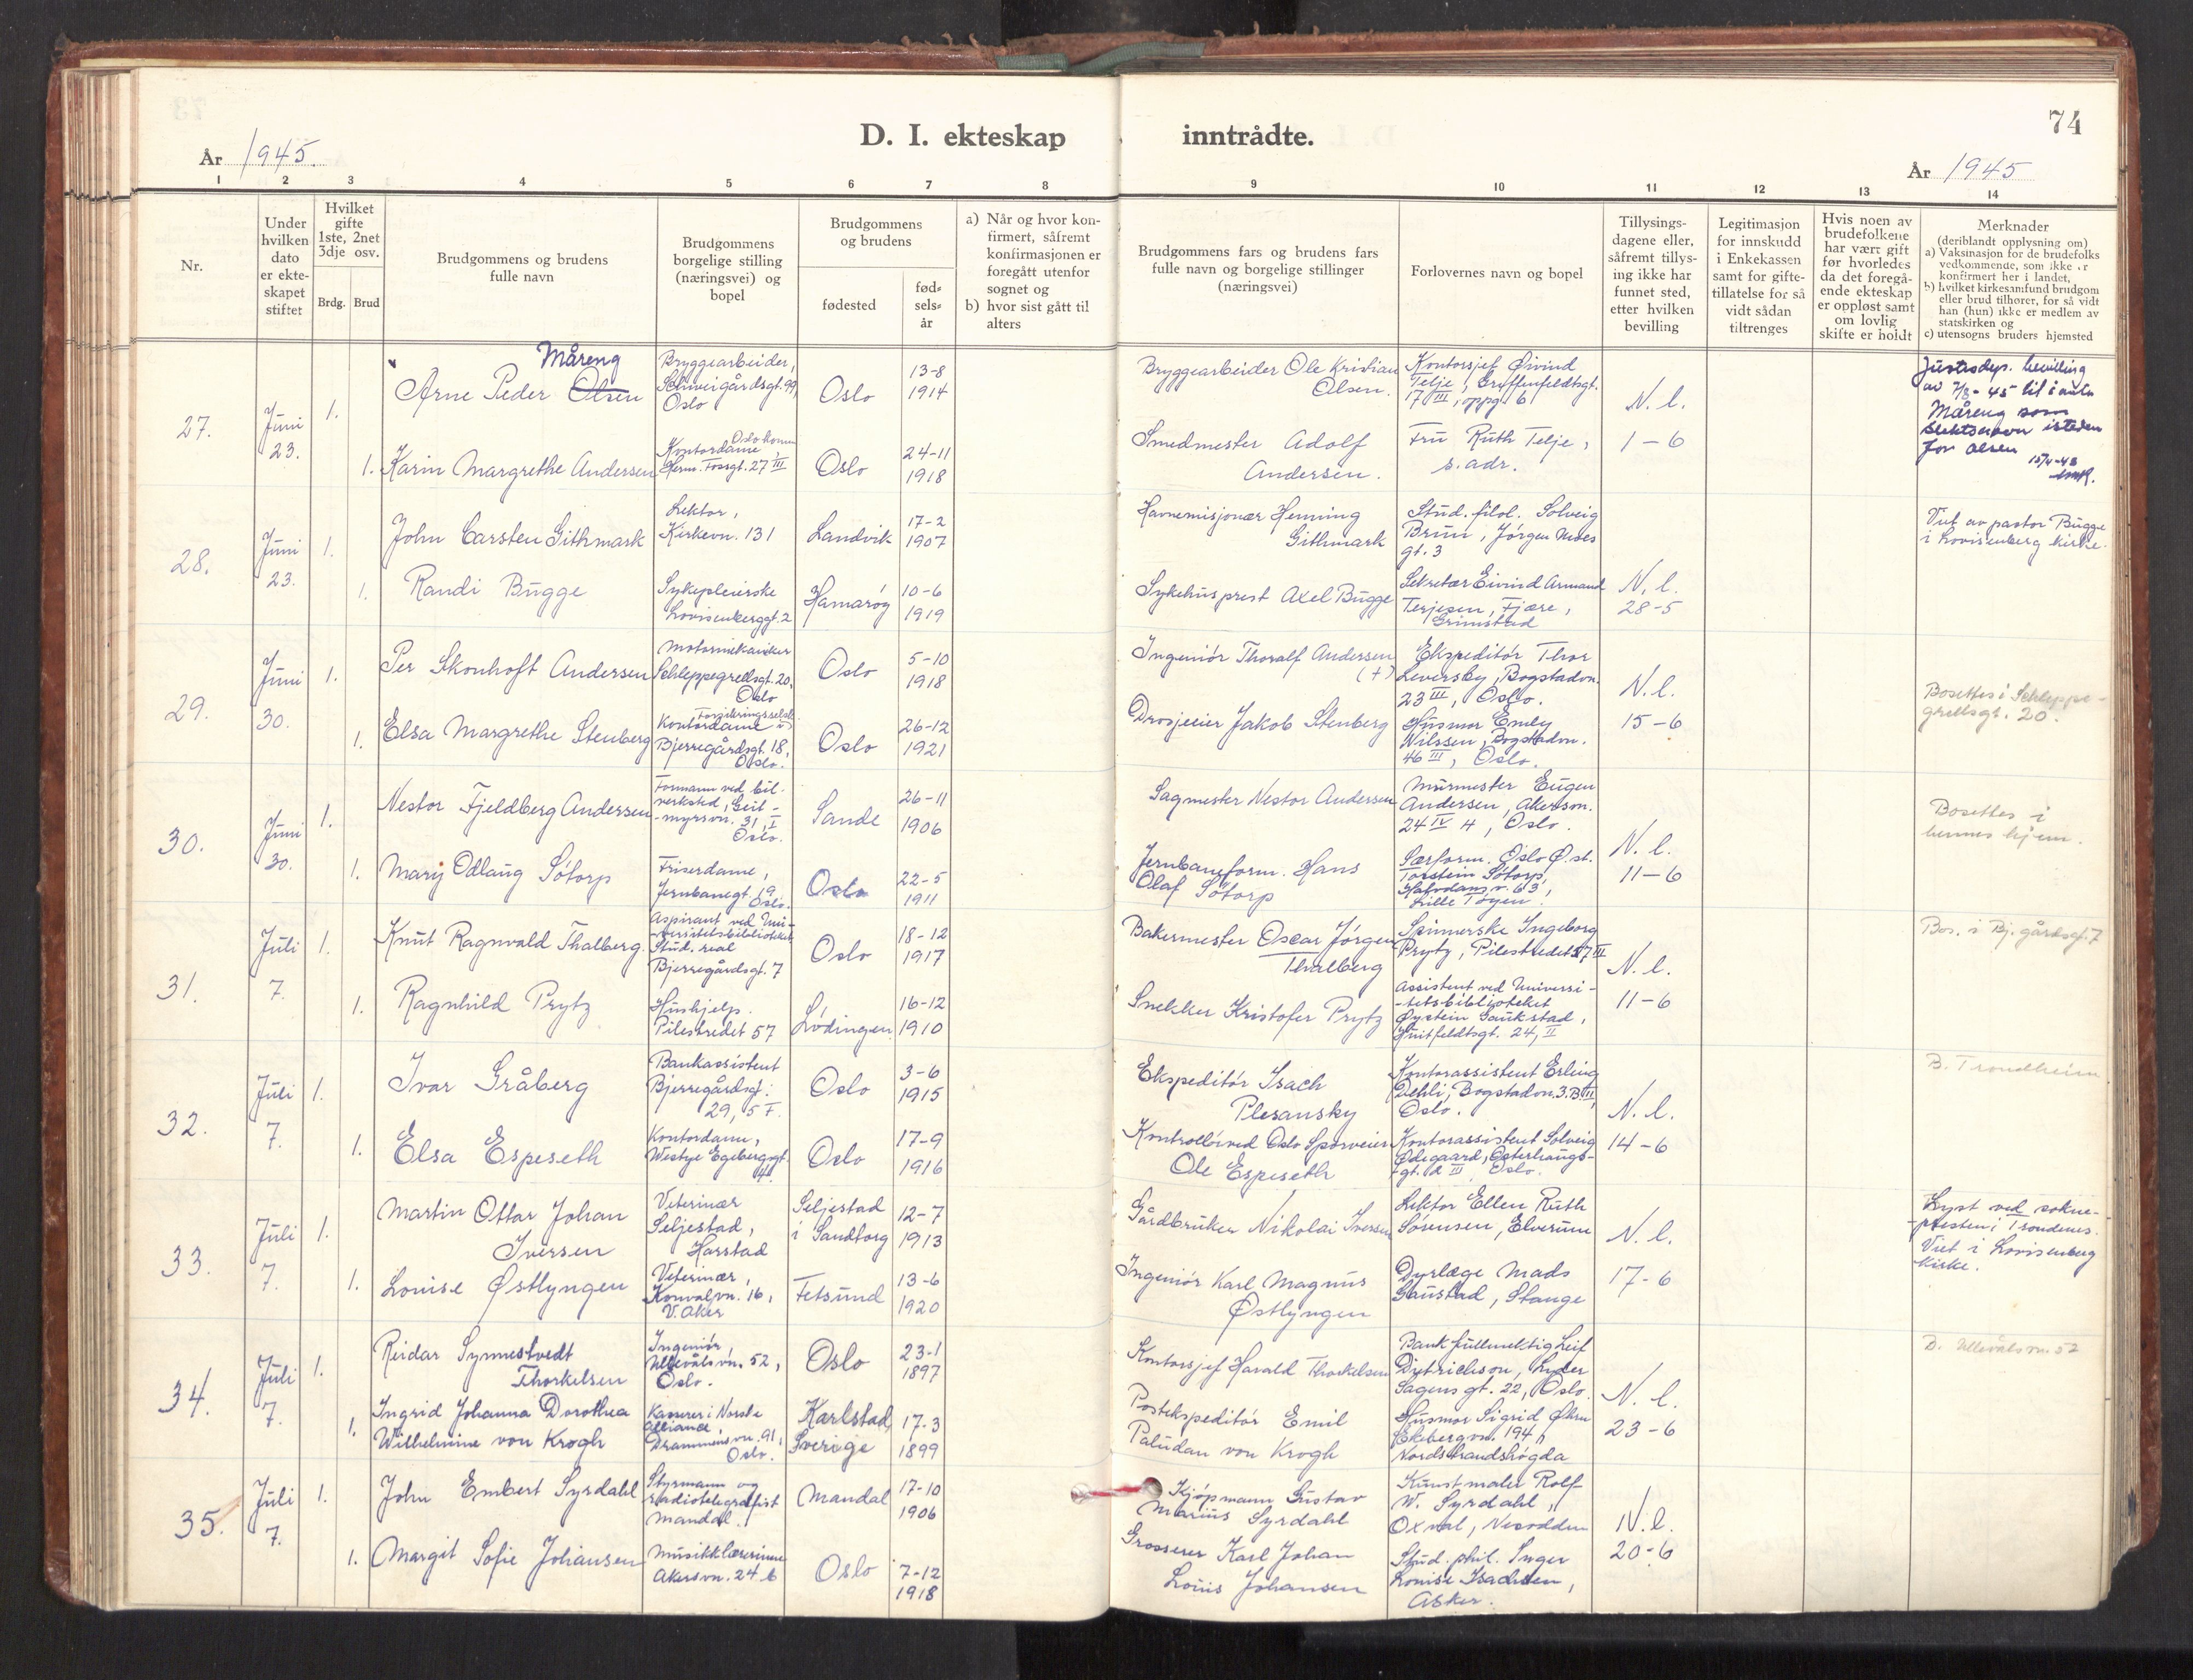 74
D. I. ekteskap inntrådte.
År 1945.
År 1945
1 2 3 4 5 6 7 8 9 10 11 12 13 14
Nr.
Under
hvilken
dato
er ekte-
skapet
stiftet
Hvilket
gifte
1ste, 2net
3dje osv.
Brdg. Brud
Brudgommens og brudens
fulle navn
Brudgommens
borgelige stilling
(næringsvei) og
bopel
Brudgommens
og brudens
fødested
fød-
sels-
år
a) Når og hvor kon-
firmert, såfremt
konfirmasjonen er
foregått utenfor
sognet og
b) hvor sist gått til
alters
Brudgommens fars og brudens fars
fulle navn og borgelige stillinger
(næringsvei)
Forlovernes navn og bopel
Tillysings-
dagene eller,
såfremt tillys-
ing ikke har
funnet sted,
etter hvilken
bevilling
Legitimasjon
for innskudd
i Enkekassen
samt for gifte-
tillatelse for så
vidt sådan
tiltrenges
Hvis noen av
brudefolkene
har vært gift
før hvorledes
da det foregå-
ende ekteskap
er oppløst samt
om lovlig
skifte er holdt
Merknader
(deriblandt opplysning om)
a) Vaksinasjon for de brudefolks
vedkommende, som ikke er
konfirmert her i landet,
b) hvilket kirkesamfund brudgom
eller brud tilhører, for så vidt
han (hun) ikke er medlem av
statskirken og
c) utensogns bruders hjemsted
27.
Juni
23.
1.
Måreng
Arne Peder Olsen
Bryggearbeider,
Schweigårdsgt. 99,
Oslo
Oslo
13-8
1914
Bryggearbeider Ole Kristian
Olsen.
Kontorsjef Øivind
Telje, Gryffenfeldtsgt.
17 III, oppg. 6
N. l.
1-6
Justisdep. bevilling
av 7/8-45 til å anta
Måreng som
slektsnavn isteden
for Olsen
15/4-48
1. Karin Margrethe Andersen
Oslo komm
Kontordame,
Herm. Fossgt. 27 III
Oslo
24-11
1918
Smedmester Adolf
Andersen.
Fru Ruth Telje,
s. adr.
28.
Juni
23.
1.
John Carsten Githmark
Lektor,
Kirkevn. 131
Landvik
17-2
1907
Havnemisjonær Henning
Githmark
Stud. filol. Solveig
Brun, Jørgen Moes
gt. 3
Viet av pastor Bugge
i Lovisenberg kirke.
1. Randi Bugge
Sykepleierske
Lovisenberggt. 2
Hamarøy
10-6
1919
Sykehusprest Axel Bugge
Sekretær Eivind Armand
Terjesen, Fjære,
Grimstad
N. l.
28-5
29.
Juni
30.
1.
Per Skonhoft Andersen
Motormekaniker
Schleppegrellsgt. 20,
Oslo
Oslo
5-10
1918
Ingeniör Thoralf Andersen
(+)
Ekspeditör Thor
Leversby, Bogstadvn.
23 III, Oslo.
N. l.
15-6
Bosettes i Schleppe-
grellsgt. 20.
1. Elsa Margrethe Stenberg
Forsikringsselsk.
Kontordame
Bjerregårdsgt. 18,
Oslo.
Oslo
26-12
1921
Drosjeeier Jakob Stenberg
Husmor Emily
Nilssen, Bogstadvn.
46 III, Oslo.
30.
Juni
30.
1.
Nestor Fjeldberg Andersen
Formann ved bil-
verksted, Geit-
-myrsvn. 31, I
Oslo.
Sande
26-11
1906
Sagmester Nestor Andersen
Murmester Eugen
Andersen, Akersvn.
24 IV 4, Oslo.
N. l.
11-6
Bosettes i
hennes hjem.
1. Mary Odlaug Sötorp
Friserdame,
Jernbanegt. 19,
Oslo.
Oslo
22-5
1911
Jernbaneform. Hans
Olaf Sötorp
Særform. Oslo Ø. st.
Torstein Sötorp,
Halvdans v. 63,
Lille Tøyen.
31.
Juli
7.
1.
Knut Ragnvald Thalberg.
Aspirant ved Uni-
-versitetsbiblioteket
Stud. real
Bjerregårdsgt. 7
Oslo
18-12
1917
Bakermester Oscar Jörgen
Thalberg
Spinnerske Ingeborg
Prytz, Pilestredet 57 III
N. l.
11-6
Bos. i Bj. gårdsgt. 7
1. Ragnhild Prytz
Hushjelp.
Pilestredet 57
Lödingen
16-12
1910
Snekker Kristofer Prytz
Assistent ved Universi-
-tetsbiblioteket
Øystein Gaukstad,
Huitfeldtsgt. 24, II
32.
Juli
7.
1.
Ivar Gråberg
Bankassistent
Bjerregårdsgt.
29, 5 F.
Oslo
3-6
1915
Ekspeditör Isach
Plesansky
Kontorassistent Erling
Dehli, Bogstadvn. 3. B III,
Oslo.
N. l.
14-6
B. Trondheim.
1. Elsa Espeseth
Kontordame,
Westye Egebergsgt.
4
Oslo
17-9
1916
Kontrollör ved Oslo Sporveier
Ole Espeseth
Kontorassistent Solveig
Ødegaard, Osterhaugs-
-gt. 2 III Oslo.
33.
Juli
7.
1.
Martin Ottar Johan
Iversen
Veterinær
Seljestad,
Harstad
Seljestad
i Sandtorg
12-7
1913
Gårdbruker Nikolai Iversen
Lektor Ellen Ruth
Sørensen, Elverum
N. l.
17-6
Lyst ved sokne-
-presten i Trondenes.
Viet i Lovisenberg
kirke.
1. Louise Østlyngen
Veterinær,
Konvalvn. 16,
V. Aker
Fetsund
13-6
1920
Ingeniör Karl Magnus
Østlyngen
Dyrlæge Mads
Gaustad, Stange
34.
Juli
7.
1.
Reidar Synnestvedt
Thorkelsen
Ingeniør,
Ullevålsvn. 52,
Oslo.
Oslo
23-1
1897
Kontorsjef Harald Thorkelsen
Bankfullmektig Leif
Dietrichson, Lyder
Sagens gt. 22, Oslo.
N. l.
23-6
B. Ullevålsvn. 52
1. Ingrid Johanna Dorothea
Wilhelmine von Krogh
Kasserer i Norske
Alliance,
Drammensvn. 91,
Oslo.
Karlstad,
Sverige
17-3
1899
Postekspeditör Emil
Paludan von Krogh
Husmor Sigrid Øhrn
Ekebergvn. 194,
Nordstrandshögda
35.
Juli
7.
1.
John Embert Syrdahl
Styrmann og
radiotelegrafist
Mandal.
Mandal
17-10
1906
Kjøpmann Gustav
Marius Syrdahl
Kunstmaler Rolf
W. Syrdahl,
Oxval, Nesodden
N. l.
20-6
1. Margit Sofie Johansen
Musikklærerinne
Akersvn. 24 b
Oslo
7-12
1918
Grosserer Karl Johan
Louis Johansen
Stud. phil. Inger
Louise Isachsen,
Asker.